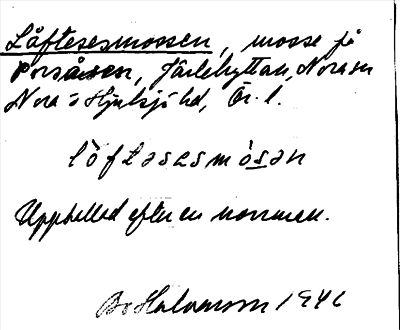 Låftesesmossen, mosse på
Porsåsen, Järlehyttan, Nora sn
Nora o Hjulsjö hd, Ör. l.
lòftəsesmòsən
Uppkallad efter en
Bo Halvarsson 1946